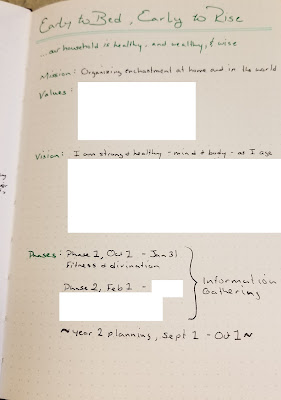 Early to Bed, Early to Rise
...our household is healthy, and wealthy, & wise
Mission: Organizing enchantment at home and in the world
Values:
Vision: I am strong & healthy - mind & body - as I age
Phases: Phase 1, Oct 1 - Jan 31
Fitness & divination
Phase 2, Feb 1 -
Information
Gathering
~ year 2 planning, Sept 1 - Oct 1 ~